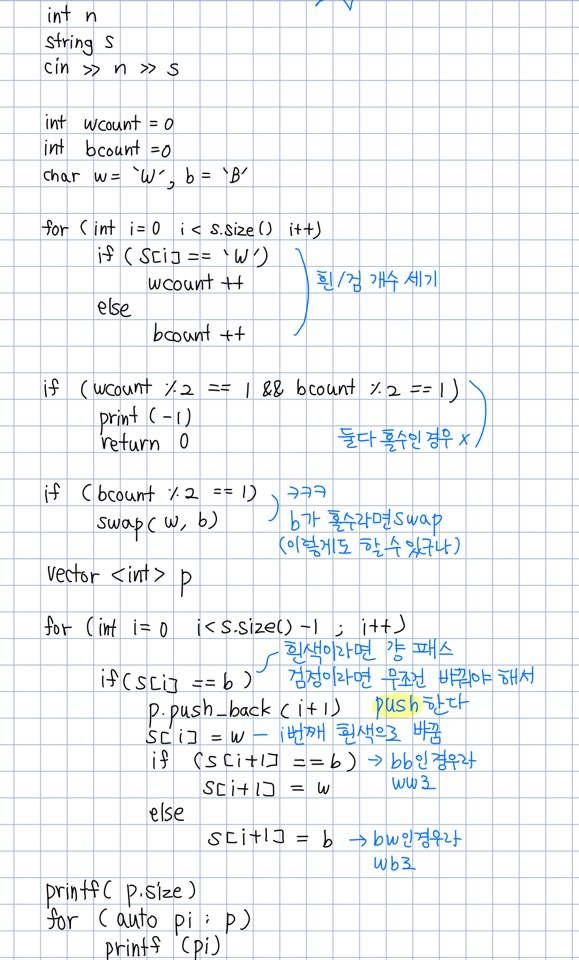 int n
string s
cin >> n >> s
int wcount = 0
int bcount =0
char w= 'W', b = 'B'
for (int i=0 i < s.size() i++)
if (s[i] == 'W')
wcount ++
else
bcount ++
흰/검 개수 세기
if (wcount %2 == 1 && bcount %2 ==1)
print (-1)
return 0
둘다 홀수인 경우 x
if (bcount %2 ==1)
swap(w, b)
ㅋㅋㅋ
b가 홀수라면 swap
(이렇게도 할 수 있구나)
vector <int> p
for (int i= 0 i<s.size()-1 ; i++)
흰색이라면 걍 패스
if(s[i] ==b)
검정이라면 무조건 바꿔야 해서
p.push_back (i+1) push한다
s[i] = w – i번째 흰색으로 바꿈
if (s[i+1] ==b) → bb인 경우라
s[i+1] = w ww로
else
s[i+1] = b → bw인 경우라
wb로
printf( p.size)
for (auto pi : p)
printf (pi)